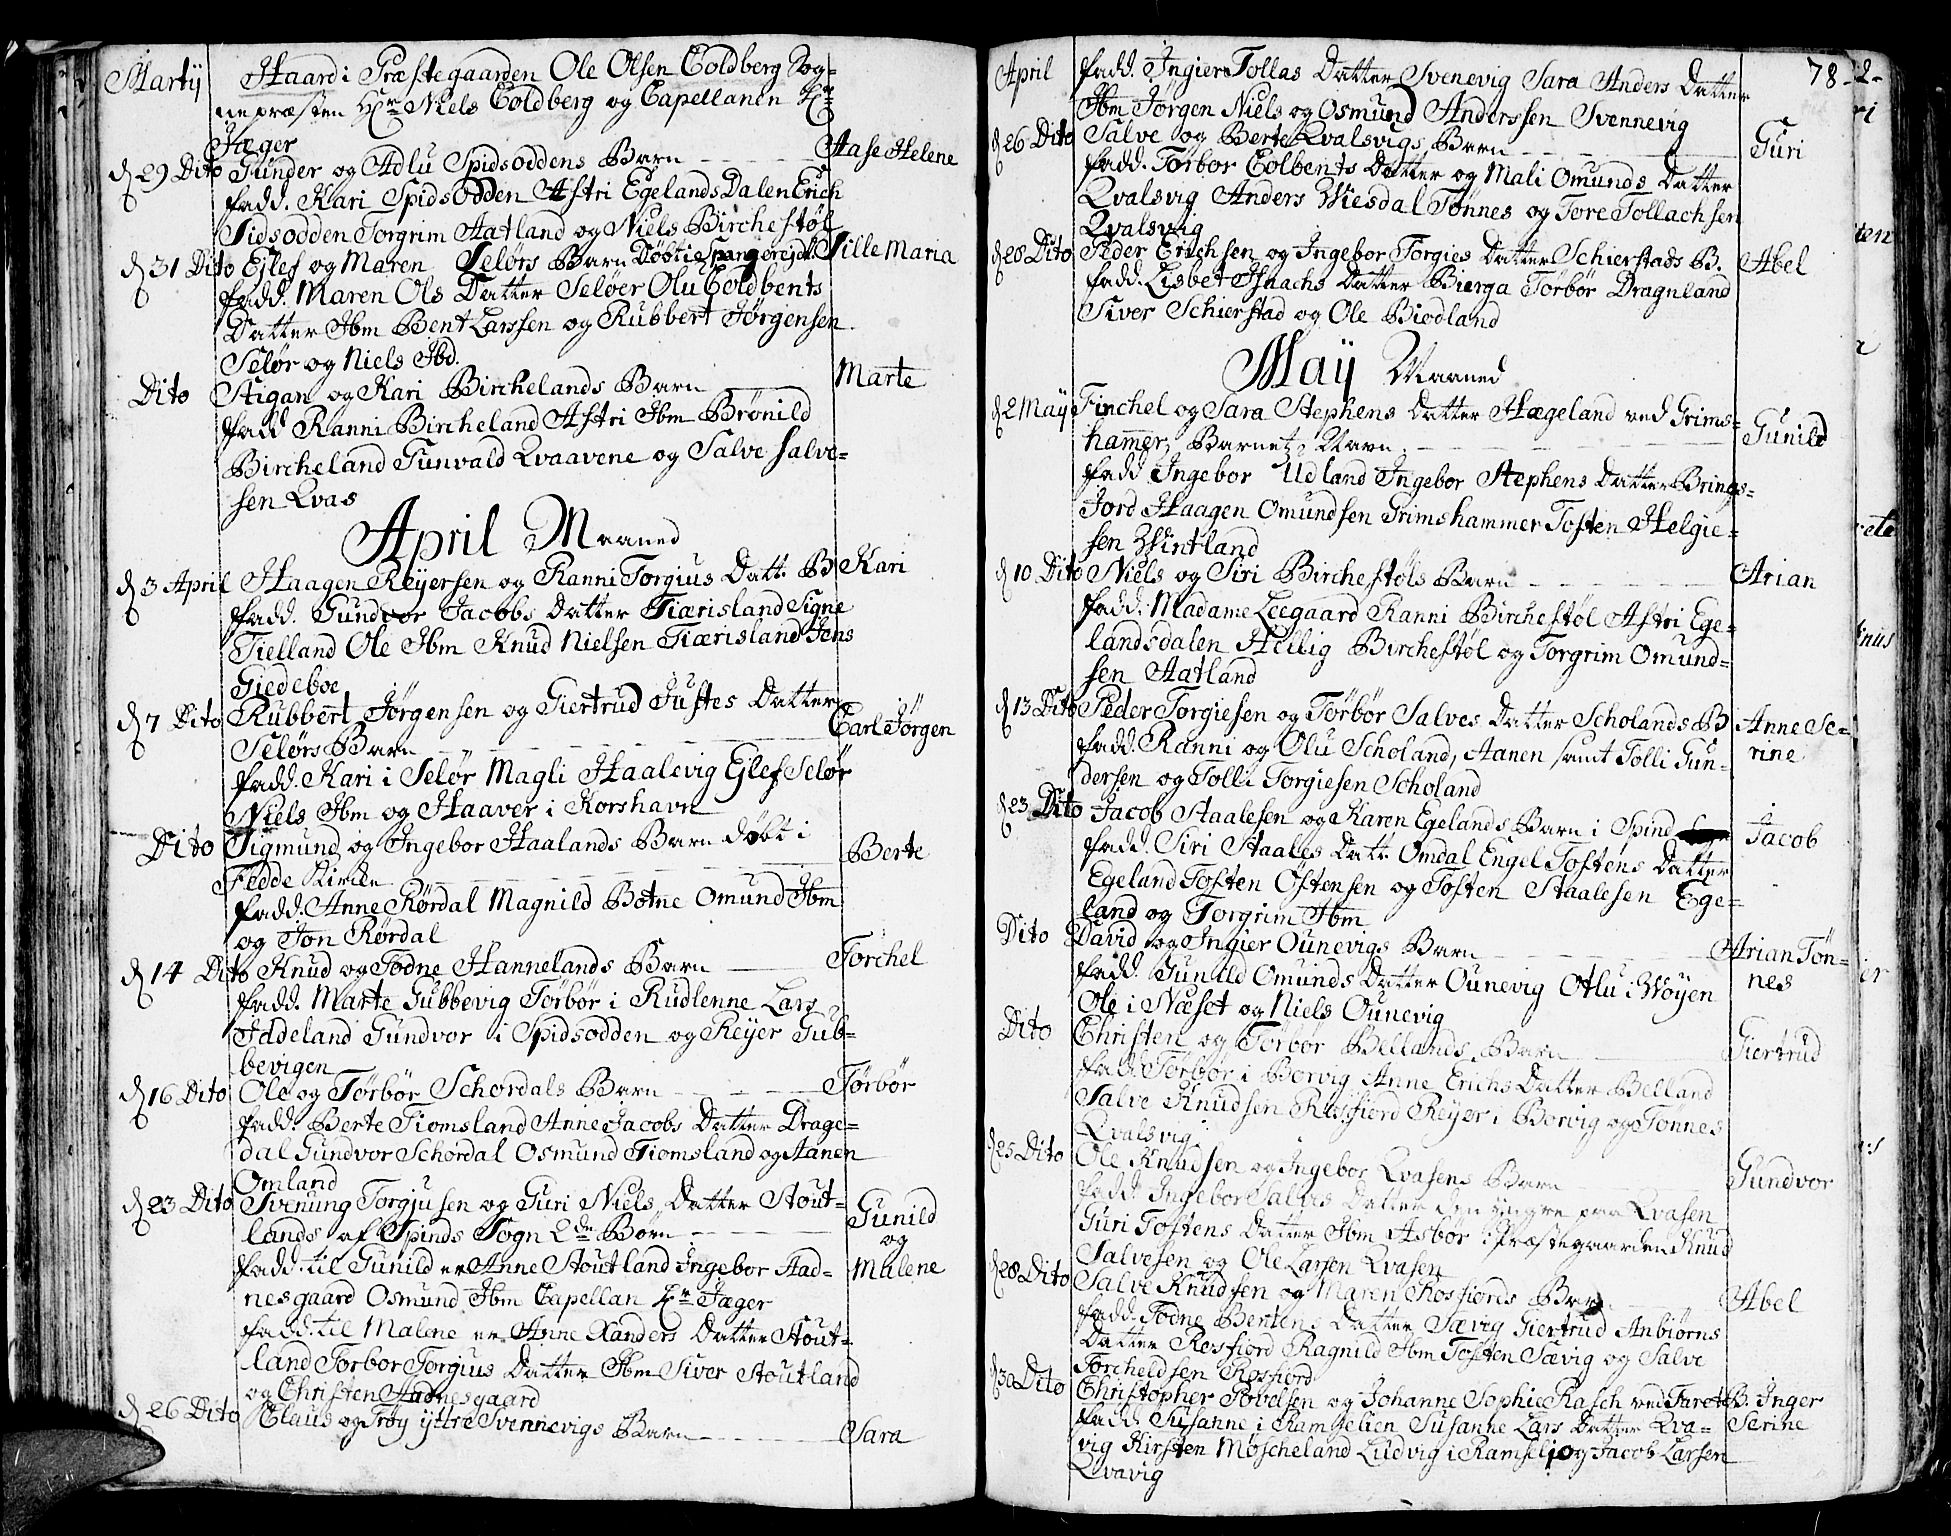 Martij
Haard i Præstegaarden Ole Olsen Coldberg Sog-
nepræsten Hr Niels Coldberg og Capellanen Hr
Jæger
d 29 Dito Gunder og Adlu Spidsoddens Barn Aase Helene
fadd. Kari Spidsodden Astri Egelands Dalen Erich
Sidsodden Torgrim Aatland og Niels Birchestøl
d 31 Dito Ejlef og Maren Selørs Barn Døbt i Spangerejd Sille Maria
fadd. Maren Ols Datter Seløer Olu Coldbents
Datter Ibm Bent Larssen og Rubbert Jørgensen
Selør og Niels Ibd.
Dito Stigan og Kari Birchelands Barn Marte
fadd Ranni Bircheland Astri Ibm Brønild
Bircheland Gunvald Qvaavene og Salve Salve-
sen Qvas
April Maaned
d 3 April Haagen Reyersen og Ranni Torgius Datt. B Kari
fadd. Gundvor Jacobs Datter Tiærisland Signe
Tielland Ole Ibm Knud Nielsen Tiærisland Jens
Giedeboe
d 7 Dito Rubbert Jørgensen og Giertrud Justes Datter Carl Jørgen
Selørs Barn
fadd. Kari i Selør Magli Haalevig Ejlef Selør
Niels Ibm og Haaver i Korshavn
Dito Sigmund og Ingebor Haalands Barn døbt i Berte
Fedde Kircke
fadd. Anne Rørdal Magnild Botne Omund Ibm
og Jon Rørdal
d 14 Dito Knud og Todne Hannelands Barn Torchel
fadd. Marte Gubbevig Tørbør i Rudlenne Lars
Jadeland Gundvor i Spidsodden og Reyer Gub-
bevigen
d 16 Dito Ole og Tørbør Schordals Barn Tørbør
fadd. Berte Tiomsland Anne Jacobs Datter Drage-
dal Gundvor Schordal Osmund Tiomsland og Aanen
Omland
d 23 Dito Svenung Torgjusen og Guri Niels Datter Stout- Gunild
lands af Spinds Sogn 2de Børn og
fadd. til Gunild er Anne Stoutland Ingebor Aad- Malene
nesgaard Osmund Ibm Capellan Hr Jæger
fadd. til Malene er Anne Xanders Datter Stout-
land Torbor Torgius Datter Ibm Siver Stoutland
og Christen Aadnesgaard
d 26 Dito Claus og Trøy ÿttre Svennevigs Barn Sara
April 78
fadd. Ingier Tollas Datter Svenevig Sara Anders Datter
Ibm Jørgen Niels og Osmund Anderssen Svennevig
d 26 Dito Salve og Berte Qvalsvigs Barn Guri
fadd. Torbor Colbents Datter og Mali Omunds Datter
Qvalsvig Anders Wiesdal Tønnes og Tore Tollachsen
Qvalsvig
d 28 Dito Peder Erichsen og Ingebor Torgies Datter Schierstads B. Abel
fadd. Lisbet Isaachs Datter Bierga Torbør Dragnland
Siver Schierstad og Ole Biodland
Maij Maaned
d 2 Maÿ Finchel og Sara Stephens Datter Hægeland ved Grims- Gunild
hamer, Barnets Navn
fadd Ingebor Udland Ingebor Stephens Datter Brings-
Jord Haagen Omundsen Grimshammer Tosten Helgie-
sen Wintland
d 10 Dito Niels og Siri Birchestøls Barn Arian
fadd. Madame Leegaard Ranni Birchestøl Astri Ege-
landsdalen Hellig Birchestøl og Torgrim Omund-
sen Aatland
d 13 Dito Peder Torgiesen og Torbør Salves Datter Scholands B Anne Se-
fadd. Ranni og Olu Scholand, Aanen samt Tolli Gun- rine
dersen og Tolli Torgiesen Scholand
d 23 Dito Jacob Staalesen og Karen Egelands Barn i Spind Jacob
fadd. Siri Staales Datt. Omdal Engel Tostens Datter
Egeland Tosten Ostensen og Tosten Staalesen Ege-
land og Torgrim Ibm
Dito David og Ingier Ounevigs Barn Arian Tøn-
fadd. Gunild Omunds Datter Ounevig Otlu i Woÿen nes
Ole i Næset og Niels Ounevig
Dito Christen og Tørbør Bellands Barn Giertrud
fadd. Tørbør i Borvig Anne Erichs Datter Belland
Salve Knudsen Rosfiord Reÿer i Borvig og Tønnes
Qvalsvig
d 25 Dito Ole Knudsen og Ingebor Qvasens Barn Gundvor
fadd. Ingebor Salves Datter den yngre paa Qvasen
Guri Tostens Datter Ibm Asbør i Præstegaarden Knud
Salvesen og Ole Larsen Qvasen
d 28 Dito Salve Knudsen og Maren Rosfiords Barn Abel
fadd. Todne Bentens Datter Sævig Giertrud Anbiørns
Datter Rosfiord Ragnild Ibm Tosten Sævig og Salve
Torcheldsen Rosfiord
d 30 Dito Christopher Torvelsen og Johanne Sophie Rasch ved Faret B. Inger
fadd. Susanne i Ramselien Susanne Lars Datter Qva- Serine
vig Kirsten Møscheland Ludvig i Ramseli og Jacob Larsen
Qvavig